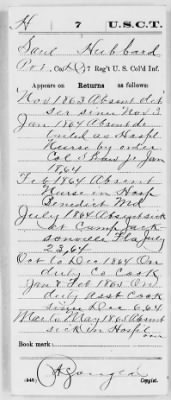 H 7 U.S.C.T.
Saul Hubbard
Pvt., Co. D, 7 Reg't U.S. Col'd Inf.
Appears on Returns as follows:
Nov 1863 Absent det
ser since Nov 3
Jan 1864 Absent de-
tailed as Hospl
Nurse by order
Col Jan
18, 64
Feb 1864 Absent
Nurse in Hosp
Benedict Md
July 1864 Absent sick
at Camp Jack-
sonville Fla July
23, 64
Oct to Dec 1864 On
duty Co Cook
Jan & Feb 1865 On
duty Asst Cook
since Dec 6, 64
Mar to May 1865 Absent
sick in Hospl
over
Book mark:
(546)
Copyist.